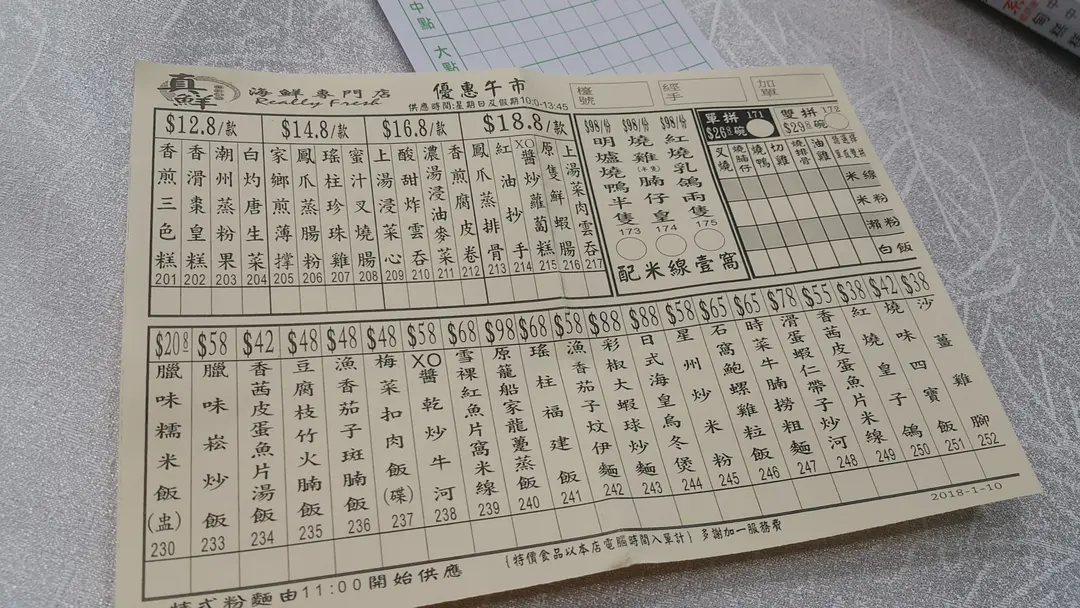 中點
大點
真鮮
海鮮專門店
Really Fresh
優惠午市
供應時間:星期日及假期10:0-13:45
檯號
經手
加單
$12.8/款
$14.8/款
$16.8/款
$18.8/款
香煎三色糕 201
香滑棗皇糕 202
潮州蒸粉果 203
白灼唐生菜 204
家鄉煎薄撑 205
鳳爪蒸腸粉 206
瑤柱珍珠雞 207
蜜汁叉燒腸 208
上湯浸菜心 209
酸甜炸雲吞 210
濃湯浸油麥菜 211
香煎腐皮卷 212
鳳爪蒸排骨 213
紅油抄手 214
XO醬炒蘿蔔糕 215
原隻鮮蝦腸 216
上湯菜肉雲吞 217
$98/份 明爐燒鴨半隻 173
$98/份 燒雞(半隻)腩仔皇 174
$98/份 紅燒乳鴿兩隻 175
配米線壹窩
單拼 171
$26元碗
雙拼 172
$29元碗
叉燒
燒腩仔
燒鴨
切雞
燒排骨
油雞
米線
米粉
瀨粉
白飯
$20.8 臘味糯米飯(盅) 230
$58 臘味崧炒飯 233
$42 香茜皮蛋魚片湯飯 234
$48 豆腐枝竹火腩飯 235
$48 漁香茄子斑腩飯 236
$48 梅菜扣肉飯(碟) 237
$58 XO醬乾炒牛河 238
$68 雪裸紅魚片窩米線 239
$98 原籠船家龍躉蒸飯 240
$68 瑤柱福建飯 241
$58 漁香茄子炆伊麵 242
$88 彩椒大蝦球炒麵 243
$88 日式海皇烏冬煲 244
$58 星州炒米粉 245
$65 石窩鮑螺雞粒飯 246
$65 時菜牛腩撈粗麵 247
$78 滑蛋蝦仁帶子炒河 248
$55 香茜皮蛋魚片米線 249
$38 紅燒皇子鴿 250
$42 燒味四寶飯 251
$38 沙薑雞腳 252
2018-1-10
(特價食品以本店電腦時間入單計) 多謝加一服務費
特式粉麵由11:00開始供應